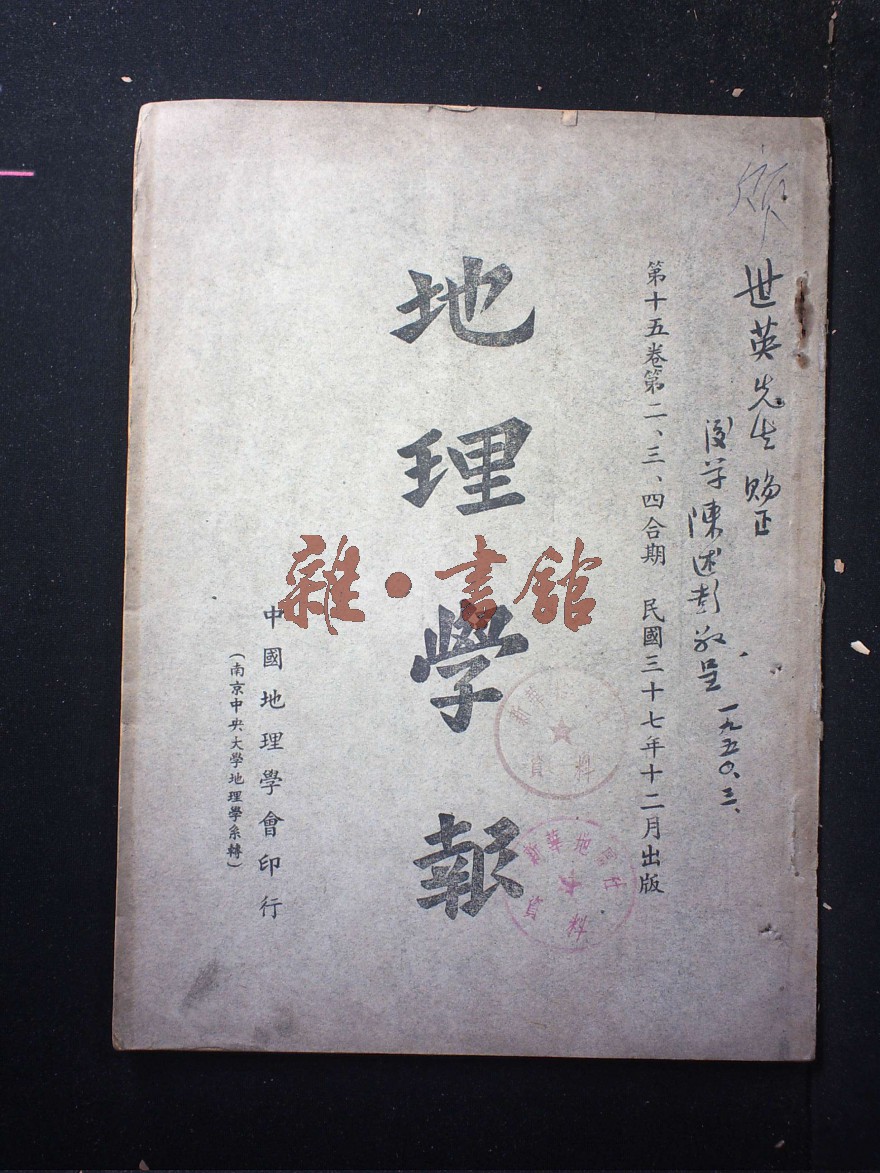 世英先生 賜正
後学陳述彭敬呈 一九五〇.三.
第十五卷第二、三、四合期 民國三十七年十二月出版
地理學報
中國地理學會印行
（南京中央大學地理學系轉）
雜·書館
資料
新華地圖社
資料